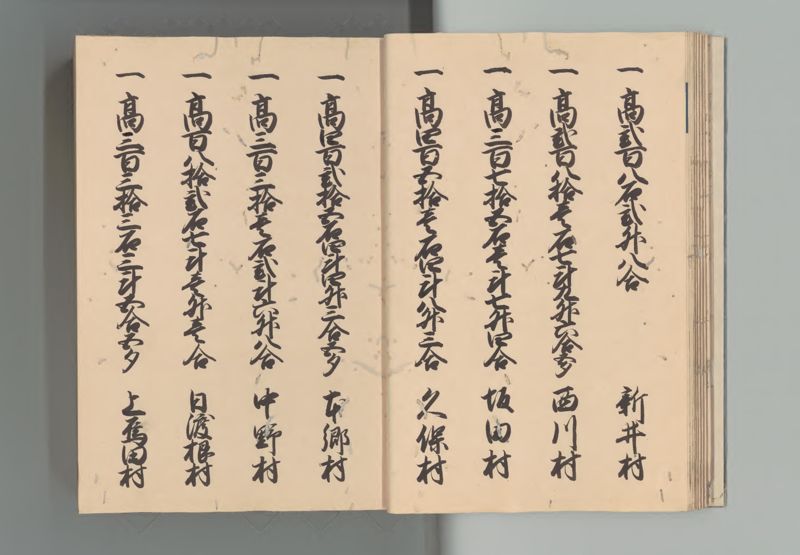 一 高弐百八石弐升八合 新井村
一 高弐百八拾壱石七斗九升六合五夕 西川村
一 高三百七拾五石壱斗七升四合 坂田村
一 高四百五拾壱石四斗八升三合 久保村
一 高四百弐拾五石四斗四升三合五夕 本郷村
一 高三百三拾壱石弐斗六升八合 中野村
一 高百八拾弐石七斗壱升壱合 日渡根村
一 高三百三拾三石三斗五合五夕 上尾田村